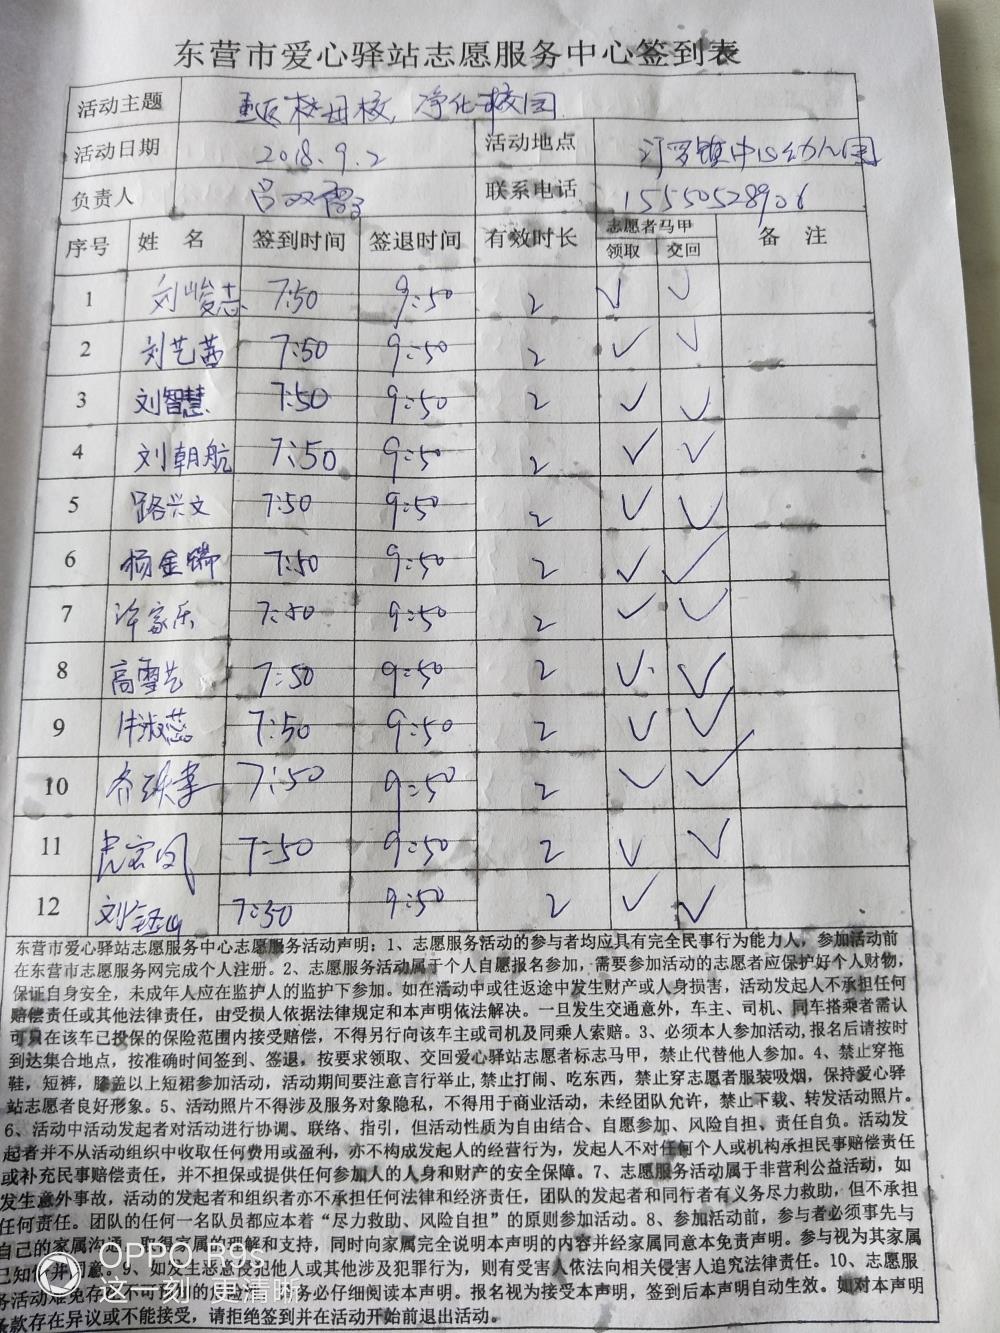 东营市爱心驿站志愿服务中心签到表
活动主题 返校母校，净化校园
活动日期 2018.9.2 活动地点 汀罗镇中心幼儿园
负责人 吕双雪 联系电话 15550528906
序号 姓 名 签到时间 签退时间 有效时长 志愿者马甲 备 注
领取 交回
1 刘峻志 7:50 9:50 2 √ √
2 刘艺茜 7:50 9:50 2 √ √
3 刘智慧 7:50 9:50 2 √ √
4 刘朝航 7:50 9:50 2 √ √
5 路兴文 7:50 9:50 2 √ √
6 杨金瑞 7:50 9:50 2 √ √
7 许家乐 7:50 9:50 2 √ √
8 高雪艺 7:50 9:50 2 √ √
9 牛淑蕊 7:50 9:50 2 √ √
10 7:50 9:50 2 √ √
11 7:50 9:50 2 √ √
12 刘 7:50 9:50 2 √ √
东营市爱心驿站志愿服务中心志愿服务活动声明：1、志愿服务活动的参与者均应具有完全民事行为能力人，参加活动前
在东营市志愿服务网完成个人注册。2、志愿服务活动属于个人自愿报名参加，需要参加活动的志愿者应保护好个人财物，
保证自身安全，未成年人应在监护人的监护下参加。如在活动中或往返途中发生财产或人身损害，活动发起人不承担任何
赔偿责任或其他法律责任，由受损人依据法律规定和本声明依法解决。一旦发生交通意外，车主、司机、同车搭乘者需认
可只在该车已投保的保险范围内接受赔偿，不得另行向该车主或司机及同乘人索赔。3、必须本人参加活动，报名后请按时
到达集合地点，按准确时间签到、签退，按要求领取、交回爱心驿站志愿者标志马甲，禁止代替他人参加。4、禁止穿拖
鞋，短裤，膝盖以上短裙参加活动，活动期间要注意言行举止，禁止打闹、吃东西，禁止穿志愿者服装吸烟，保持爱心驿
站志愿者良好形象。5、活动照片不得涉及服务对象隐私，不得用于商业活动，未经团队允许，禁止下载、转发活动照片。
6、活动中活动发起者对活动进行协调、联络、指引，但活动性质为自由结合、自愿参加、风险自担、责任自负。活动发
起者并不从活动组织中收取任何费用或盈利，亦不构成发起人的经营行为，发起人不对任何个人或机构承担民事赔偿责任
或补充民事赔偿责任，并不担保或提供任何参加人的人身和财产的安全保障。7、志愿服务活动属于非营利公益活动，如
发生意外事故，活动的发起者和组织者亦不承担任何法律和经济责任，团队的发起者和同行者有义务尽力救助，但不承担
任何责任。团队的任何一名队员都应本着“尽力救助、风险自担”的原则参加活动。8、参加活动前，参与者必须事先与
自己的家属沟通，取得家属的理解和支持，同时向家属完全说明本声明的内容并经家属同意本免责声明。参与视为其家属
已知情并同意。9、如发生恶意侵犯他人或其他涉及犯罪行为，则有受害人依法向相关侵害人追究法律责任。10、志愿服
务活动难免存在不可预知的危险，务必仔细阅读本声明。报名视为接受本声明，签到后本声明自动生效。如对本声明
条款存在异议或不能接受，请拒绝签到并在活动开始前退出活动。
OPPO R9s
这一刻 更清晰